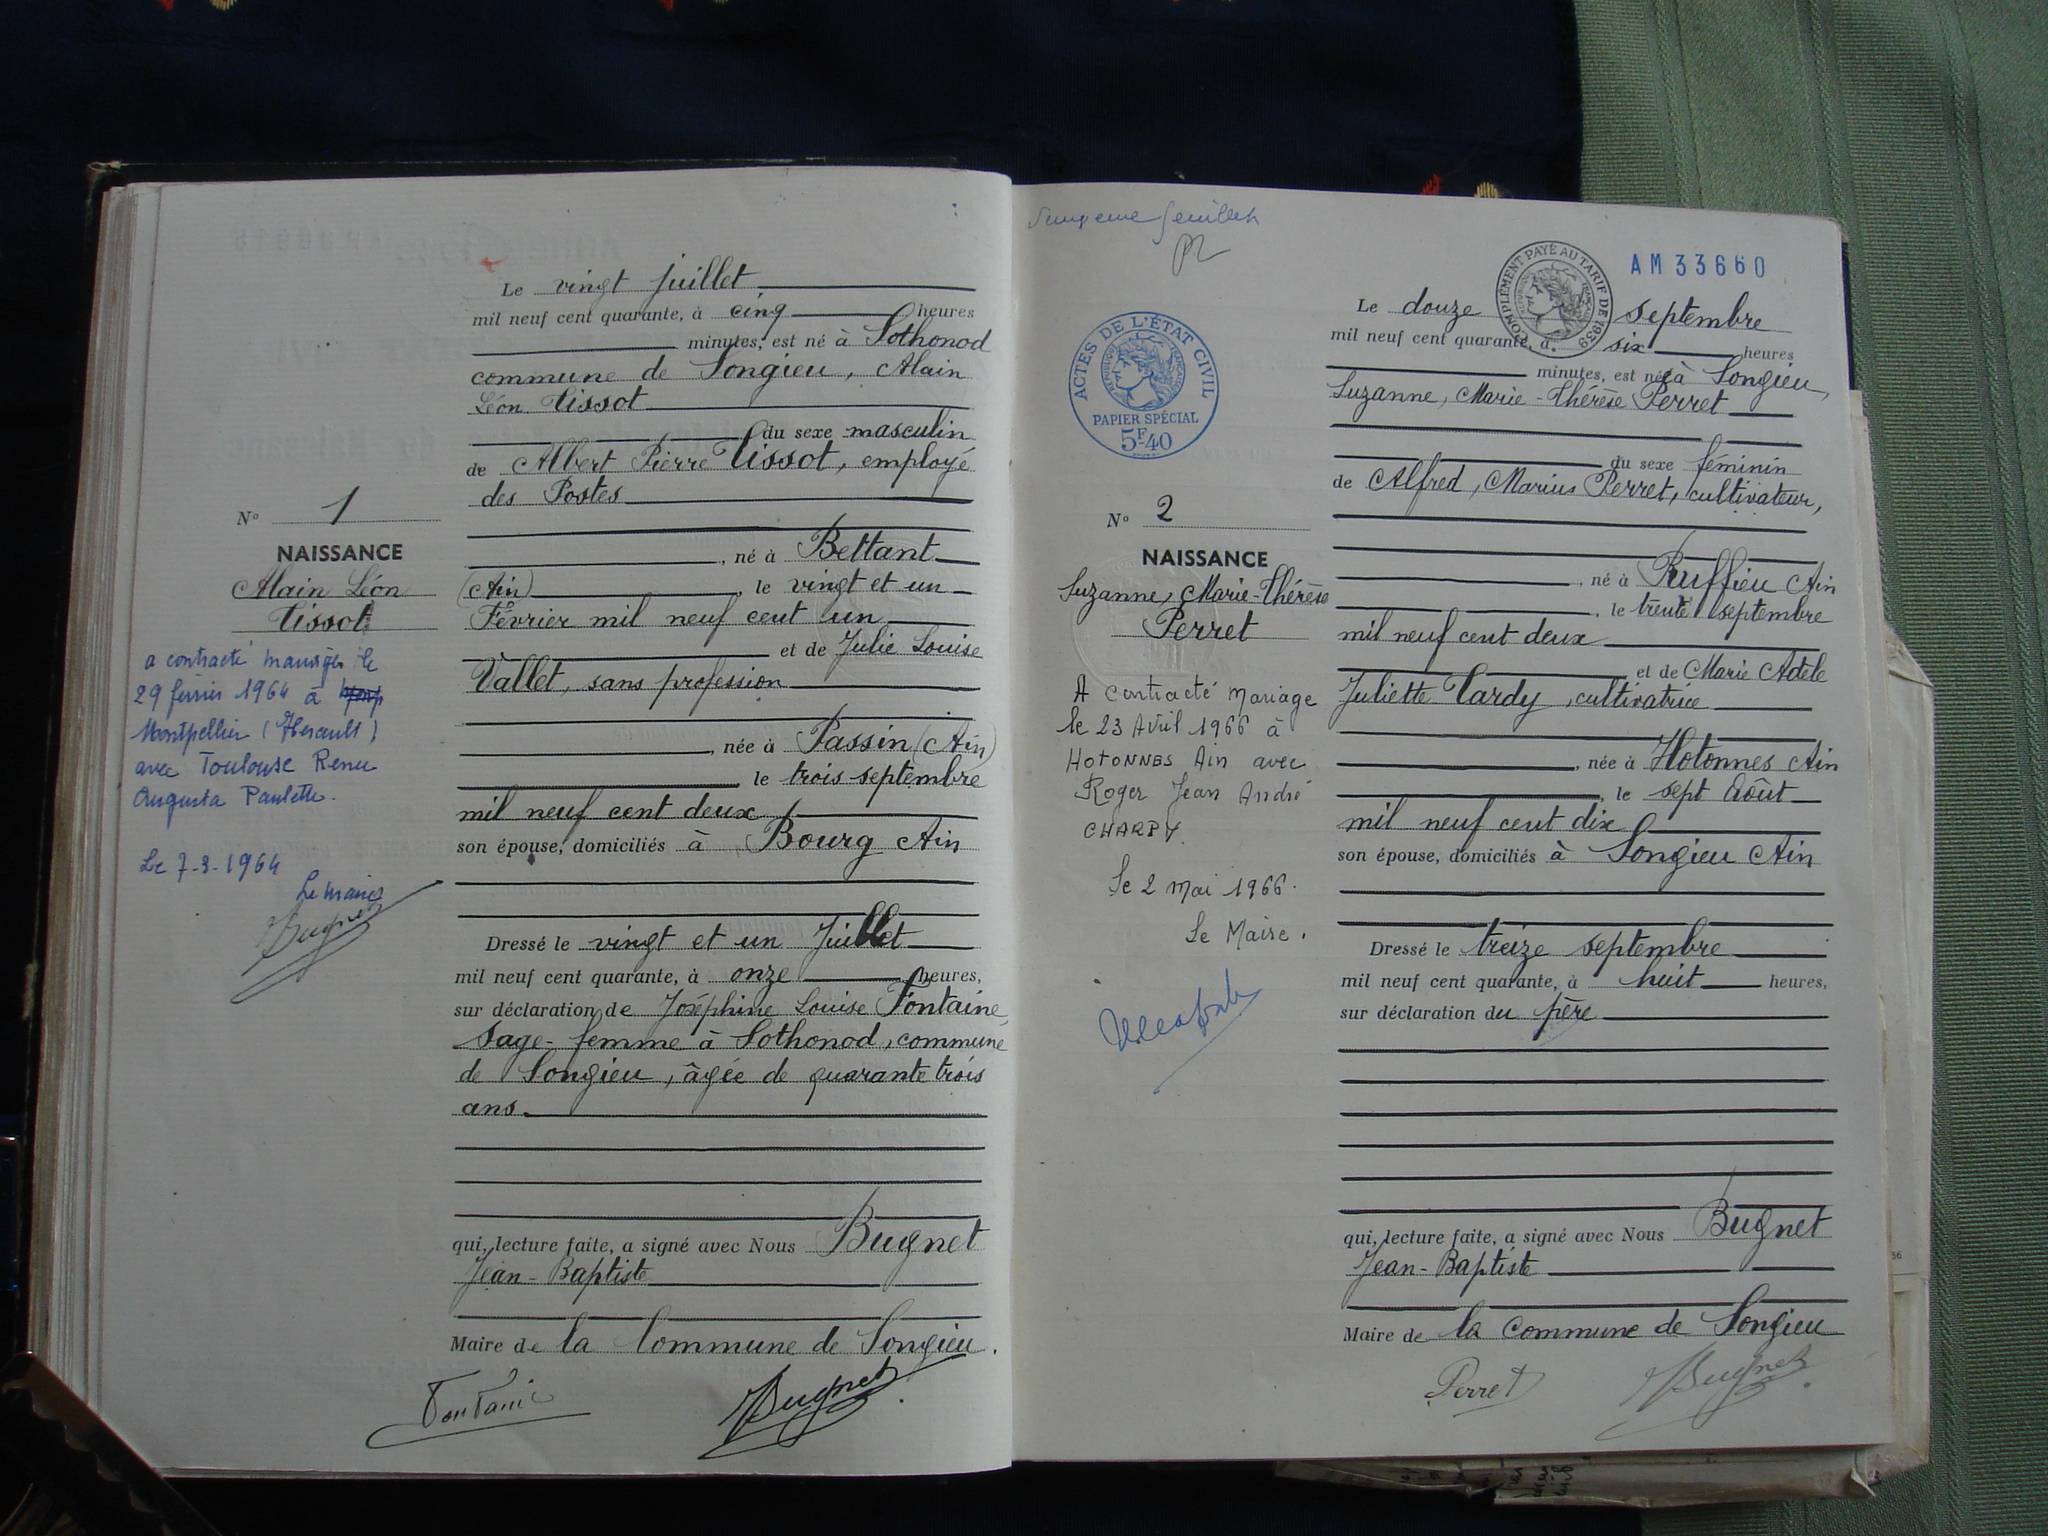 Le vingt juillet
mil neuf cent quarante, à cinq heures
minutes, est né à Sothonod
commune de Songieu, Alain
Léon Tissot
du sexe masculin
de Albert Pierre Tissot, employé
des Postes
, né à Bettant
(Ain), le vingt et un
Février mil neuf cent un
et de Julie Louise
Vallet, sans profession
, née à Passin (Ain)
le trois septembre
mil neuf cent deux
son épouse, domiciliés à Bourg Ain
Dressé le vingt et un Juillet
mil neuf cent quarante, à onze heures,
sur déclaration de Joséphine Louise Fontaine,
sage-femme à Sothonod, commune
de Songieu, âgée de quarante trois
ans
qui, lecture faite, a signé avec Nous Bugnet
Jean-Baptiste
Maire de la Commune de Songieu.
Fontaine
Bugnet
N° 1
NAISSANCE
Alain Léon
Tissot
a contracté mariage le
29 février 1964 à
Montpellier (Hérault)
avec Toulouse Renée
Augusta Paulette.
Le 7-3-1964
Le maire
Bugnet
feuillet
AM 33660
COMPLÉMENT PAYÉ AU TARIF DE 1939
ACTES DE L'ÉTAT CIVIL
RÉPUBLIQUE FRANÇAISE
PAPIER SPÉCIAL
5F40
N° 2
NAISSANCE
Suzanne, Marie-Thérèse
Perret
A contracté mariage
le 23 Avril 1966 à
HOTONNES Ain avec
Roger Jean André
CHARPY.
Le 2 mai 1966.
Le Maire.
Le douze septembre
mil neuf cent quarante, à six heures
minutes, est née à Songieu,
Suzanne, Marie-Thérèse Perret
du sexe féminin
de Alfred, Marius Perret, cultivateur,
, né à Ruffieu Ain
, le trente septembre
mil neuf cent deux
et de Marie Adèle
Juliette Tardy, cultivatrice
, née à Hotonnes Ain
, le sept Août
mil neuf cent dix
son épouse, domiciliés à Songieu Ain
Dressé le treize septembre
mil neuf cent quarante, à huit heures,
sur déclaration du père
qui, lecture faite, a signé avec Nous Bugnet
Jean-Baptiste
Maire de la commune de Songieu
Perret
Bugnet